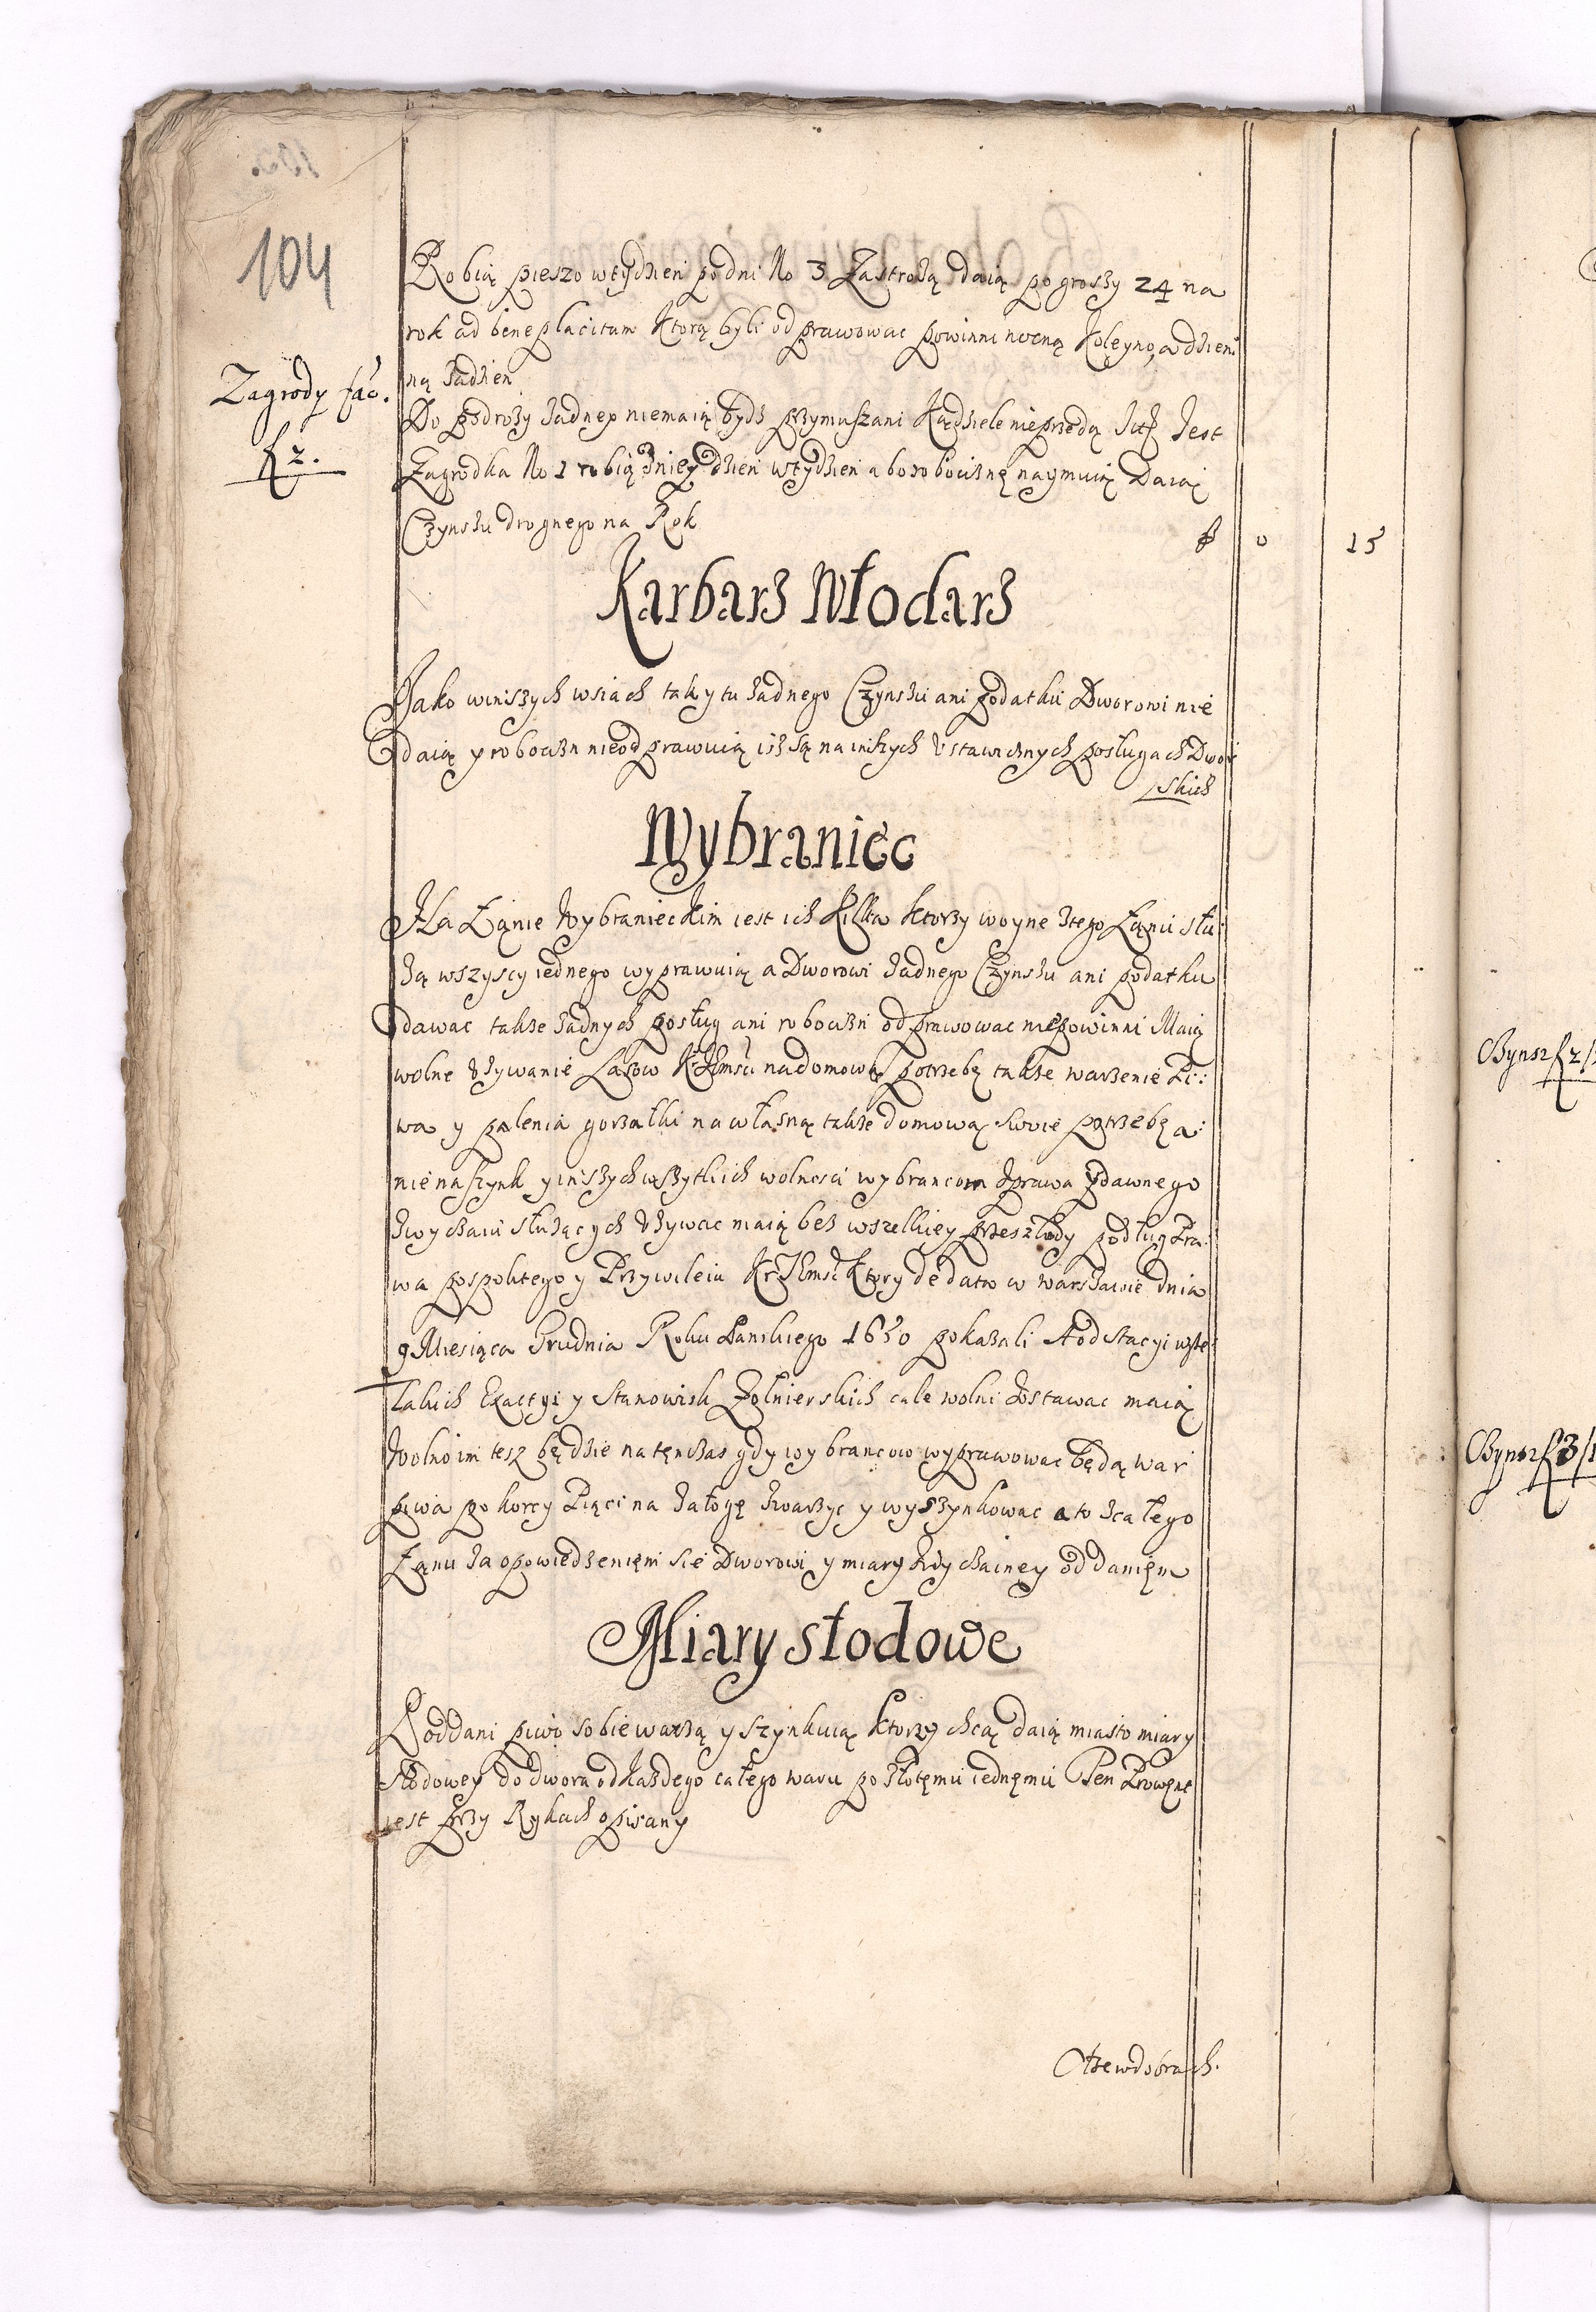 104
Robią pieszo wtydzień po dni No 3 Zastrożą daią po groszy 24 na
rok ad beneplacitum Ktorą byli odprawowac powinni nocną Koleyno, a dzien
ną żadzien
Zagrody fac.
f 2.
Do podroży żadney niemaią bydz przymuszani Kądziele nieprzędą Jest
Zagrodka No 1 robią zniey dzień wtydzień abo robociznę naymuią Daią
Czynszu drognego na Rok
0 15
Karbarz Włodarz
Jako winszych wsiach tak y tu żadnego Czynszu ani podatku Dworowi nie
daią y robocizn nieodprawuią isz są na inszych ustawicznych posługach Dwor
skich
Wybraniec
Na Łanie Wybranieckim iest ich Kilka Ktorzy woyne ztego Łanu słu
żą wszyscy iednego wyprawuią a Dworowi żadnego Czynszu ani podatku
dawac takze żadnych posług ani robocizn odprawowac niepowinni Maią
wolne używanie Lasow KrJKmśći nadomową potrzebę takze warzenie Pi:
wa y palenia gorzałki na własną takze domową swoie potrzebę a:
nie naszynk y inszych wszytkich wolnosci wybrancom zprawa y dawnego
zwyczaiu służących używac maią bez wszelkiey przeszkody podług Pra:
wa pospolitego y Przywileiu KrJKmśći Ktory de data w Warszawie dnia
9 Miesiąca Grudnia Roku Panskiego 1650 pokazali A od Stacyi wsze
lakich Exactyi y Stanowisk Żołnierskich cale wolni zostawac maią
Wolno im tesz będzie natenczas gdy wybrancow wyprawowac będą war
piwa po korcy Pięci na załogę zwarzyc y wyszynkowac a to zcałego
Łanu za opowiedzenięm sie Dworowi y miary zwyczainey oddanięm
Miary słodowe
Poddani piwo sobie warzą y szynkuią Ktorzy chcą daią miasto miary
słodowey do dwora odkażdego całego waru po złotęmu iednęmu Ten Prowęnt
iest przy Rykach opisany
Otze wdobrach.